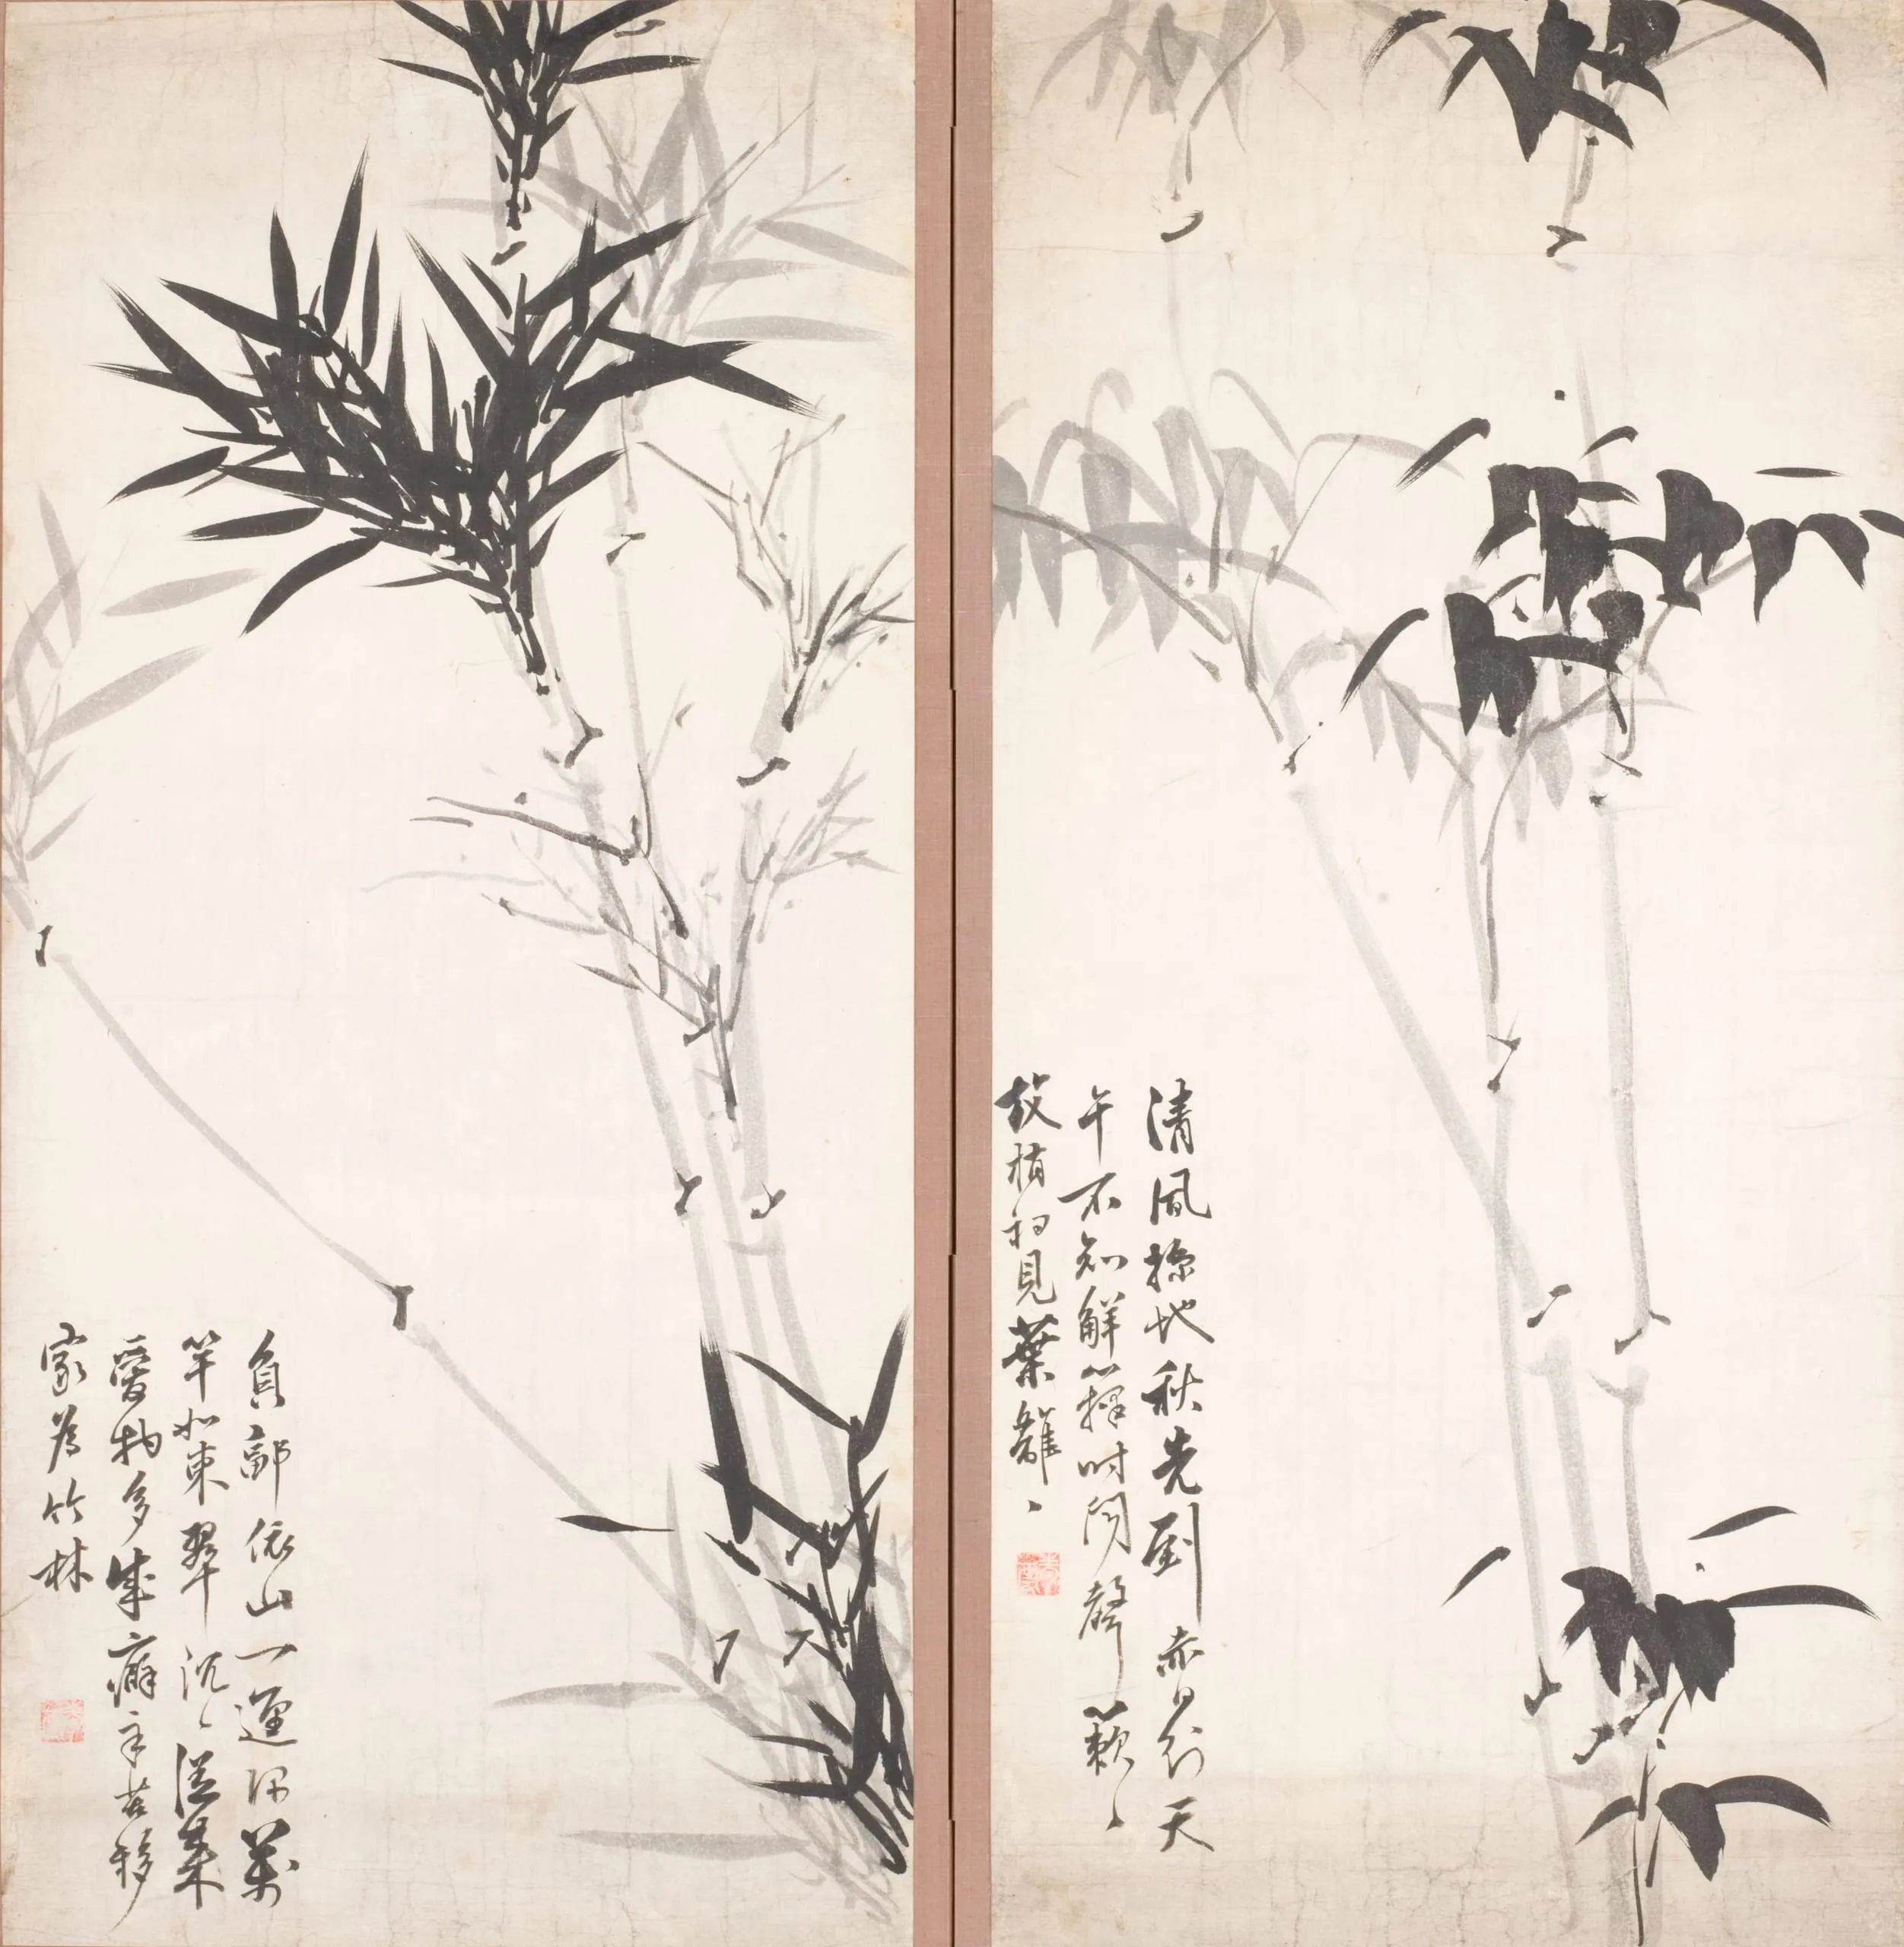 清風掠地秋先到赤日行天
午不知解籜時聞聲簌〻
放梢初見葉離〻
負郭依山一逕深萬
竿如束翠沉〻從來
愛物多成癖辛苦移
家為竹林